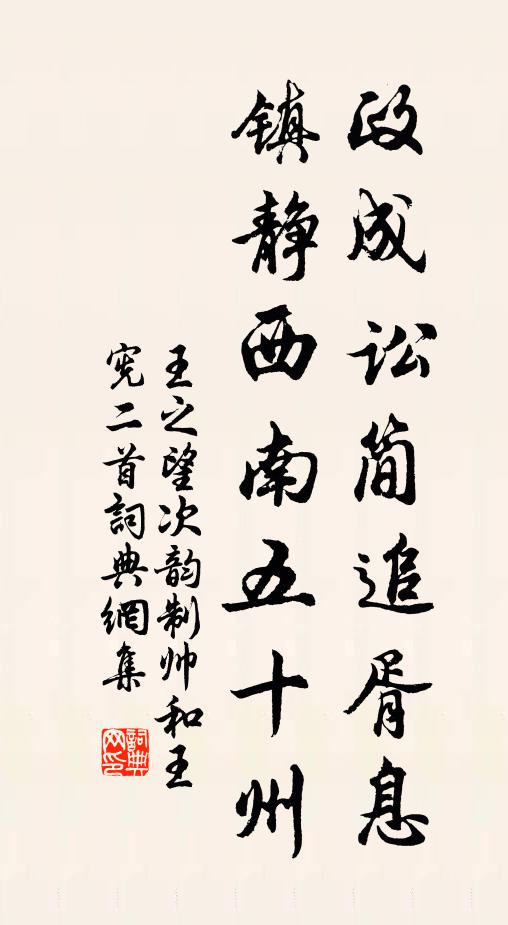 政成讼简追胥息
镇静西南五十州
王之望次韵制帅和王
宪二首詞典網集
詞典网印